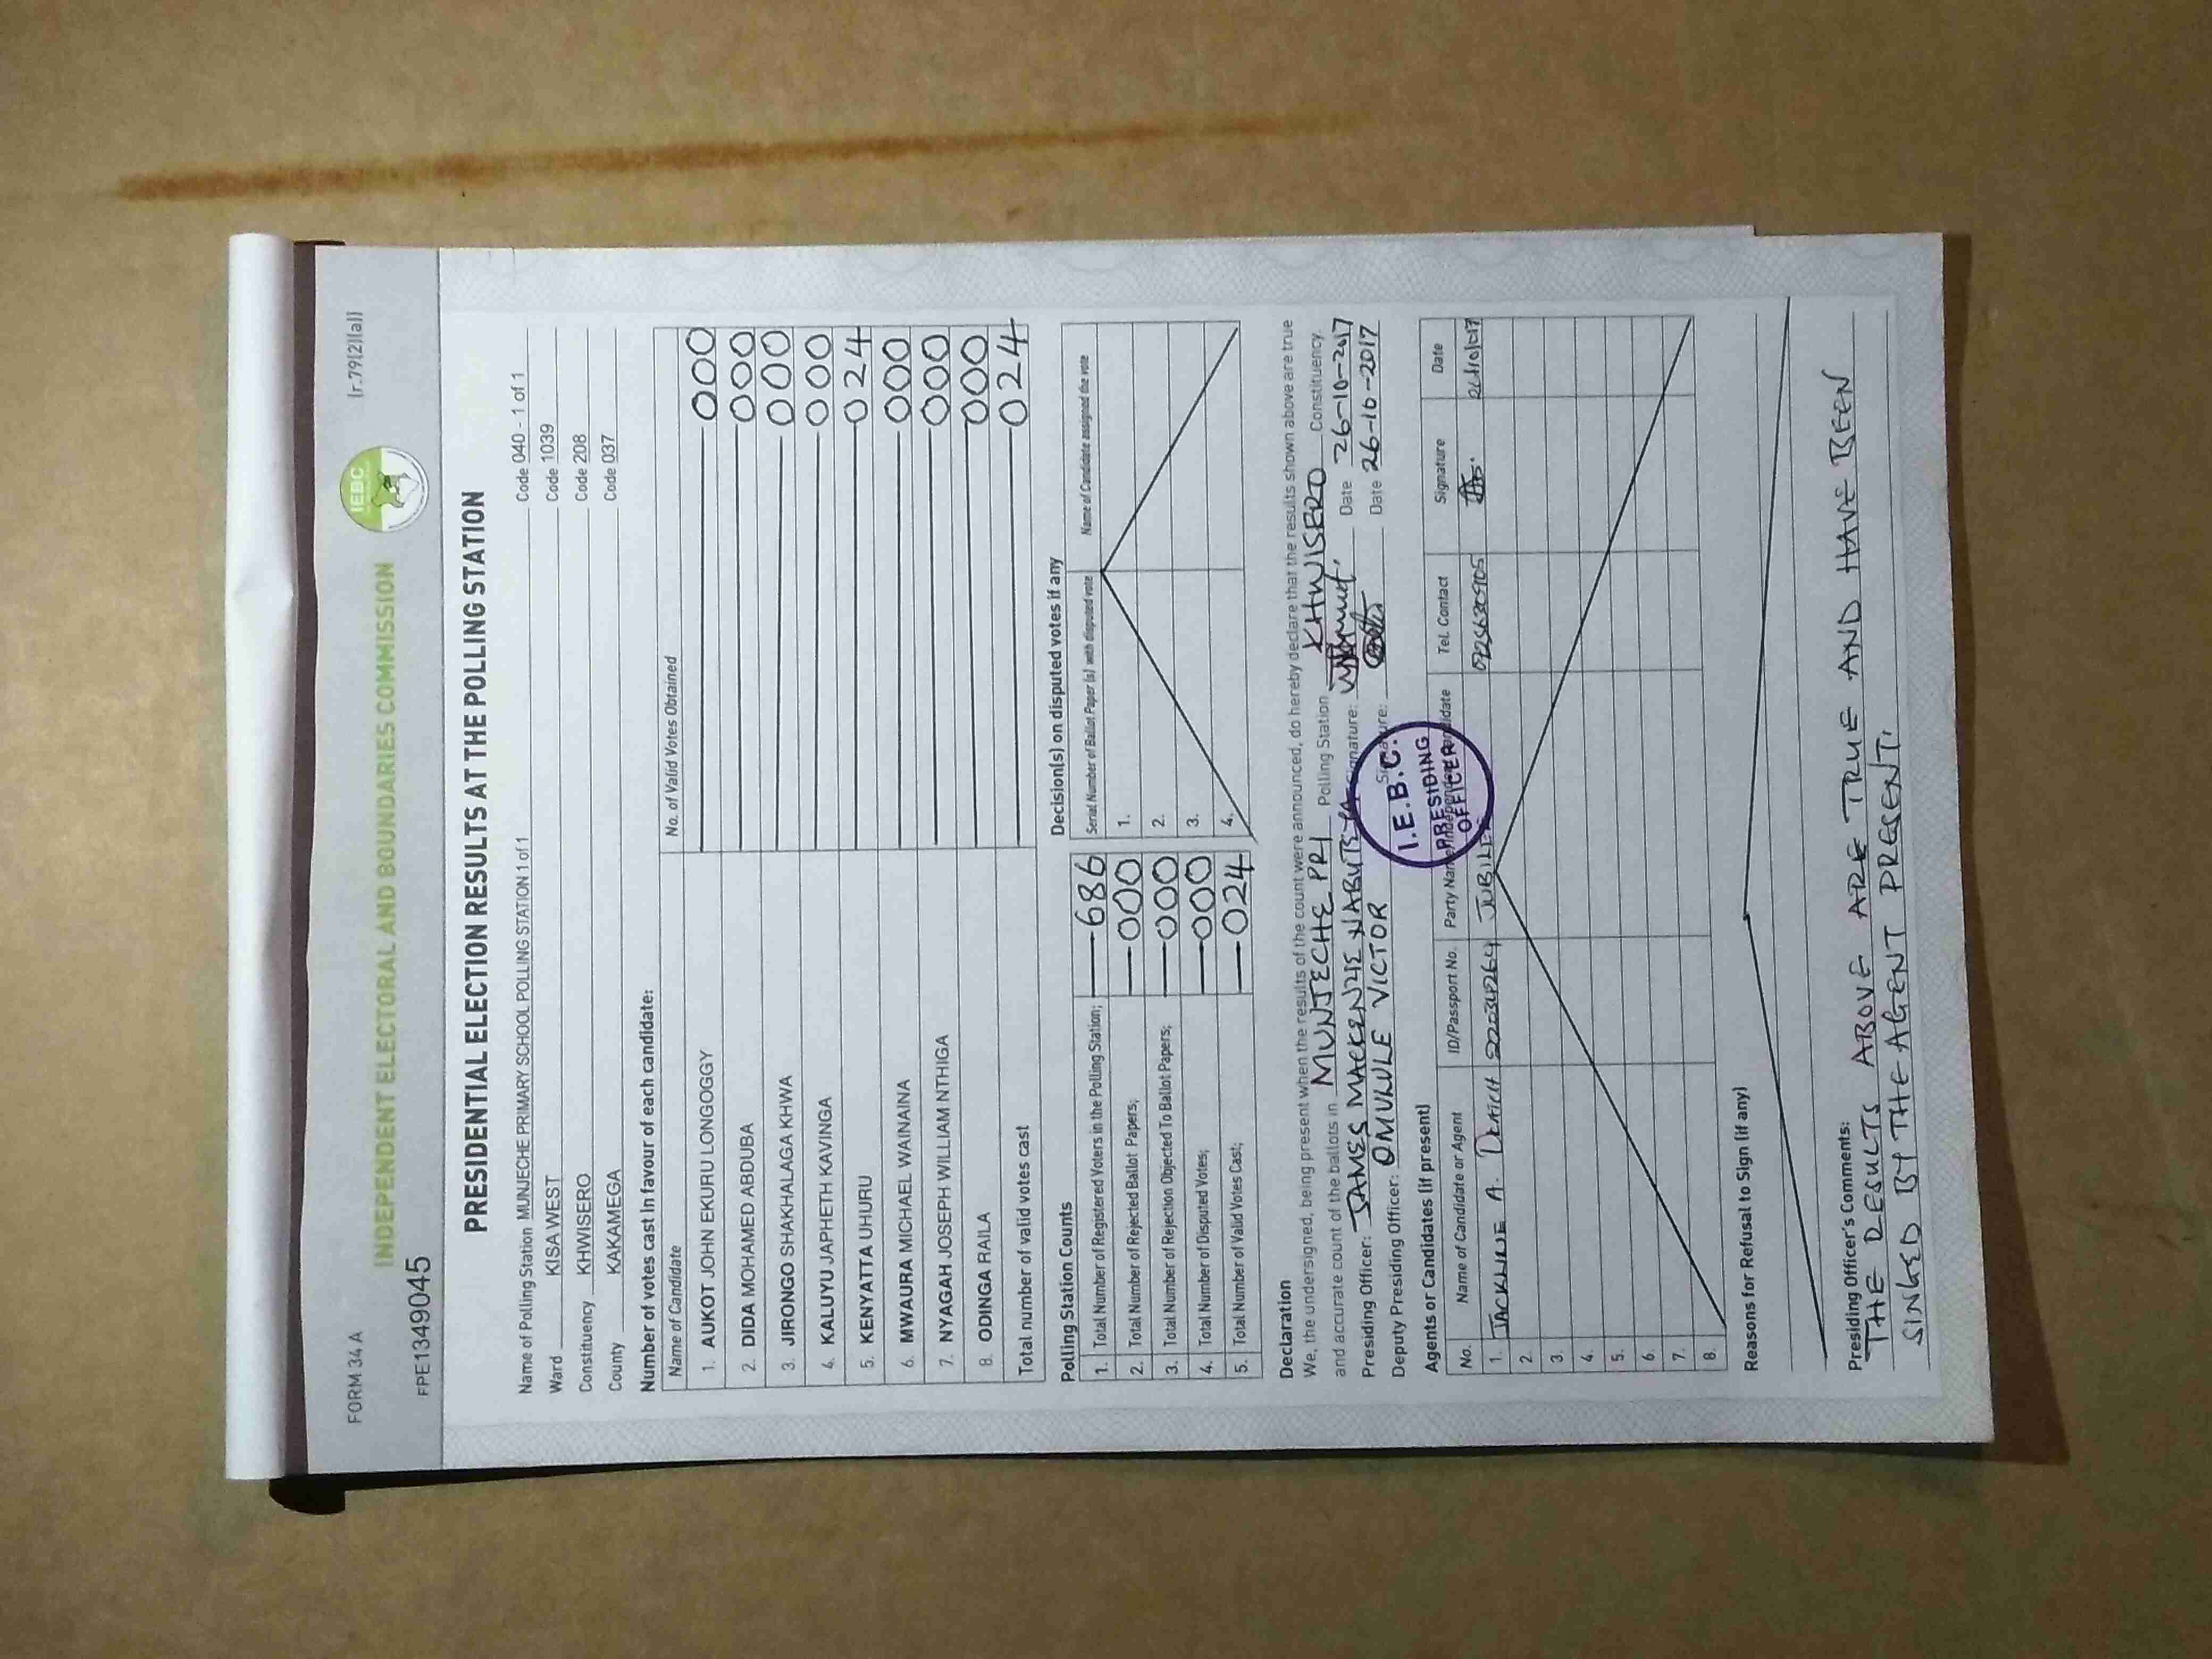 FORM 34 A
(r.79(2)(a))
INDEPENDENT ELECTORAL AND BOUNDARIES COMMISSION
IEBC
FPE1349045
PRESIDENTIAL ELECTION RESULTS AT THE POLLING STATION
Name of Polling Station MUNJECHE PRIMARY SCHOOL POLLING STATION 1 of 1 Code 040 - 1 of 1
Ward KISA WEST Code 1039
Constituency KHWISERO Code 208
County KAKAMEGA Code 037
Number of votes cast in favour of each candidate:
Name of Candidate No. of Valid Votes Obtained
1. AUKOT JOHN EKURU LONGOGGY 000
2. DIDA MOHAMED ABDUBA 000
3. JIRONGO SHAKHALAGA KHWA 000
4. KALUYU JAPHETH KAVINGA 000
5. KENYATTA UHURU 024
6. MWAURA MICHAEL WAINAINA 000
7. NYAGAH JOSEPH WILLIAM NTHIGA 000
8. ODINGA RAILA 000
Total number of valid votes cast 024
Polling Station Counts
1. Total Number of Registered Voters in the Polling Station; 686
2. Total Number of Rejected Ballot Papers; 000
3. Total Number of Rejection Objected To Ballot Papers; 000
4. Total Number of Disputed Votes; 000
5. Total Number of Valid Votes Cast; 024
Decision(s) on disputed votes if any
Serial Number of Ballot Paper (s) with disputed vote Name of Candidate assigned the vote
1.
2.
3.
4.
Declaration
We, the undersigned, being present when the results of the count were announced, do hereby declare that the results shown above are true
and accurate count of the ballots in MUNJECHE PRI Polling Station KHWISERO Constituency.
Presiding Officer: JAMES MACKENZIE Signature: Date 26-10-2017
Deputy Presiding Officer: OMULULE VICTOR Signature: Date 26-10-2017
I.E.B.C.
PRESIDING
OFFICER
Agents or Candidates (if present)
No. Name of Candidate or Agent ID/Passport No. Party Name/Independent Candidate Tel. Contact Signature Date
1. JACKLINE A. JUBILEE 26/10/2017
2.
3.
4.
5.
6.
7.
8.
Reasons for Refusal to Sign (if any)
Presiding Officer's Comments:
THE RESULTS ABOVE ARE TRUE AND HAVE BEEN
SINGED BY THE AGENT PRESENT.